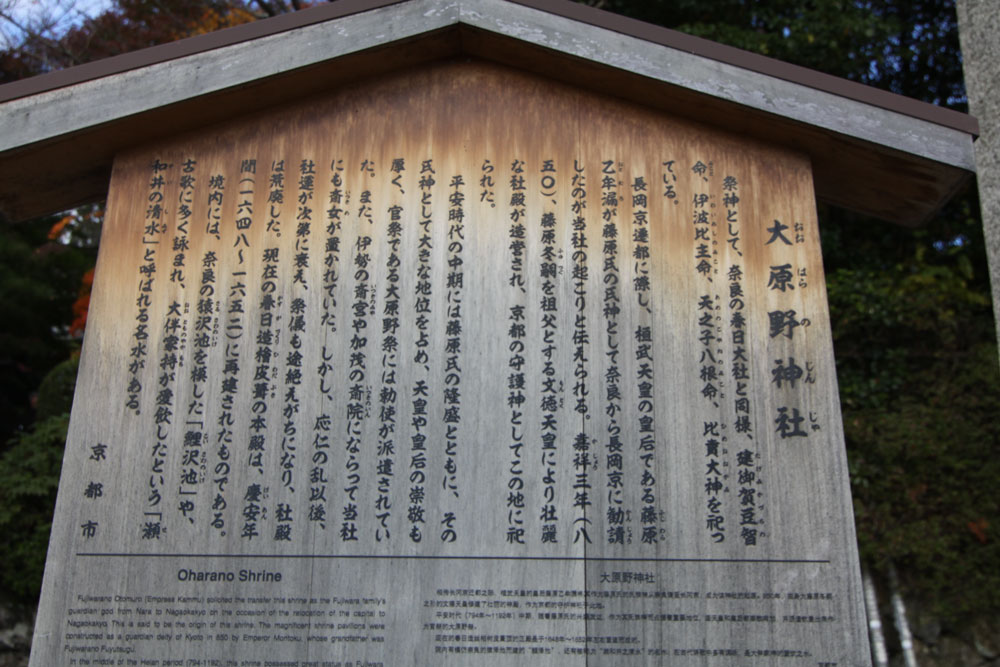 大原野神社
祭神として、奈良の春日大社と同様、建御賀豆智
命、伊波比主命、天之子八根命、比賣大神を祀っ
ている。
長岡京遷都に際し、桓武天皇の皇后である藤原
乙牟漏が藤原氏の氏神として奈良から長岡京に勧請
したのが当社の起こりと伝えられる。嘉祥三年(八
五〇)、藤原冬嗣を祖父とする文徳天皇により壮麗
な社殿が造営され、京都の守護神としてこの地に祀
られた。
平安時代の中期には藤原氏の隆盛とともに、その
氏神として大きな地位を占め、天皇や皇后の崇敬も
厚く、官祭である大原野祭には勅使が派遣されてい
た。また、伊勢の斎宮や加茂の斎院にならって当社
にも斎女が置かれていた。しかし、応仁の乱以後、
社運が次第に衰え、祭儀も途絶えがちになり、社殿
は荒廃した。現在の春日造檜皮葺の本殿は、慶安年
間(一六四八〜一六五二)に再建されたものである。
境内には、奈良の猿沢池を模した「鯉沢池」や、
古歌に多く詠まれ、大伴家持が愛飲したという「瀬
和井の清水」と呼ばれる名水がある。
京都市
Oharano Shrine
Fujiwarano Otomuro (Empress Kammu) solicited the transfer this shrine as the Fujiwara family's
guardian god from Nara to Nagaokakyo on the occasion of the relocation of the capital to
Nagaokakyo. This is said to be the origin of the shrine. The magnificent shrine pavilions were
constructed as a guardian deity of Kyoto in 850 by Emperor Montoku, whose grandfather was
Fujiwarano Fuyutsugu.
In the middle of the Heian period (794-1192), this shrine possessed great status as Fujiwara
大原野神社